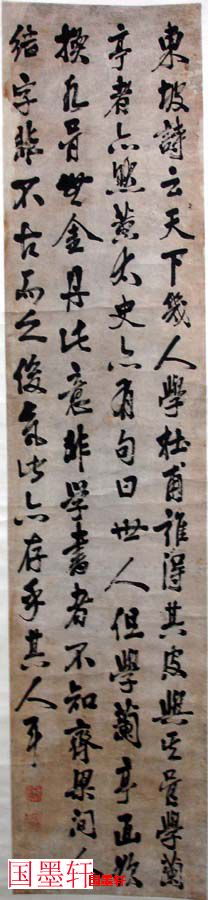 東坡詩云天下幾人學杜甫誰得其皮與其骨學蘭
亭者亦然黃太史亦有句曰世人但學蘭亭面欲
換凡骨無金丹此意非學書者不知齊梁間人
結字非不古而乏俊氣此亦存乎其人耳
国墨轩
国墨轩